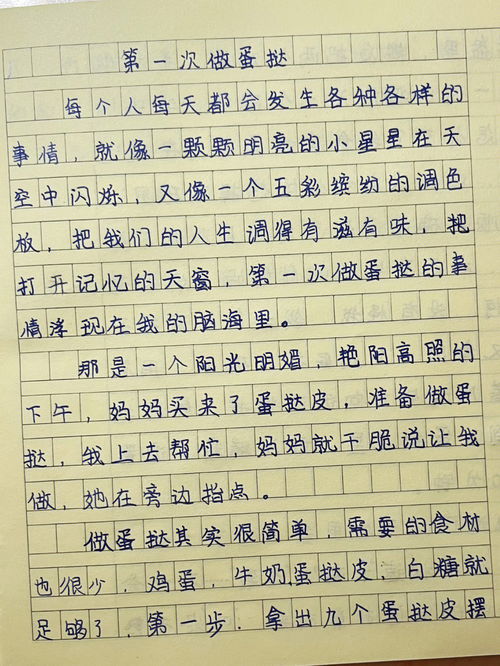 第一次做蛋挞
每个人每天都会发生各种各样的
事情，就像一颗颗明亮的小星星在天
空中闪烁，又像一个五彩缤纷的调色
板，把我们的人生调得有滋有味，把
打开记忆的天窗，第一次做蛋挞的事
情浮现在我的脑海里。
那是一个阳光明媚，艳阳高照的
下午，妈妈买来了蛋挞皮，准备做蛋
挞，我上去帮忙，妈妈就干脆说让我
做，她在旁边指点。
做蛋挞其实很简单，需要的食材
也很少，鸡蛋，牛奶，蛋挞皮，白糖就
足够了，第一步，拿出九个蛋挞皮摆